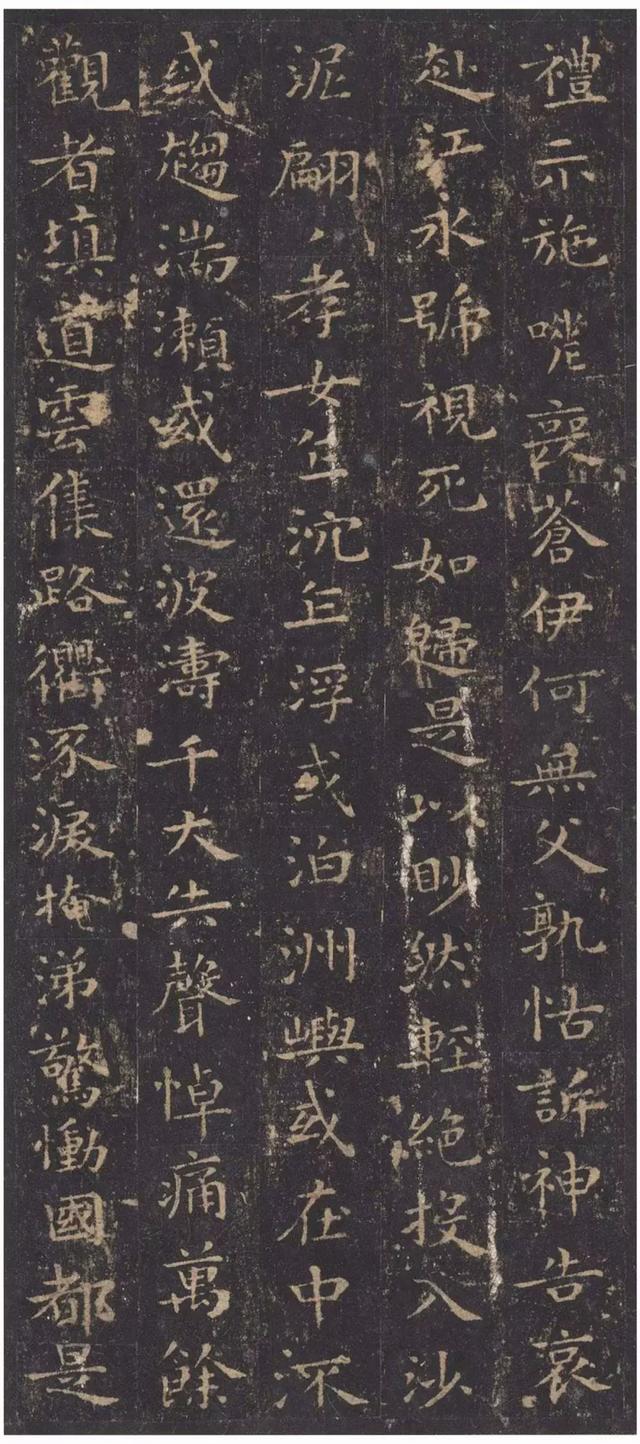 禮示施嗟喪蒼伊何無父孰怙訴神告哀
赴江永號視死如歸是以眇然輕絕投入沙
泥翩〻孝女乍沉乍浮或泊洲嶼或在中流
或趨湍瀨或還波濤千夫失聲悼痛萬餘
觀者填道雲集路衢泳淚掩涕驚慟國都是